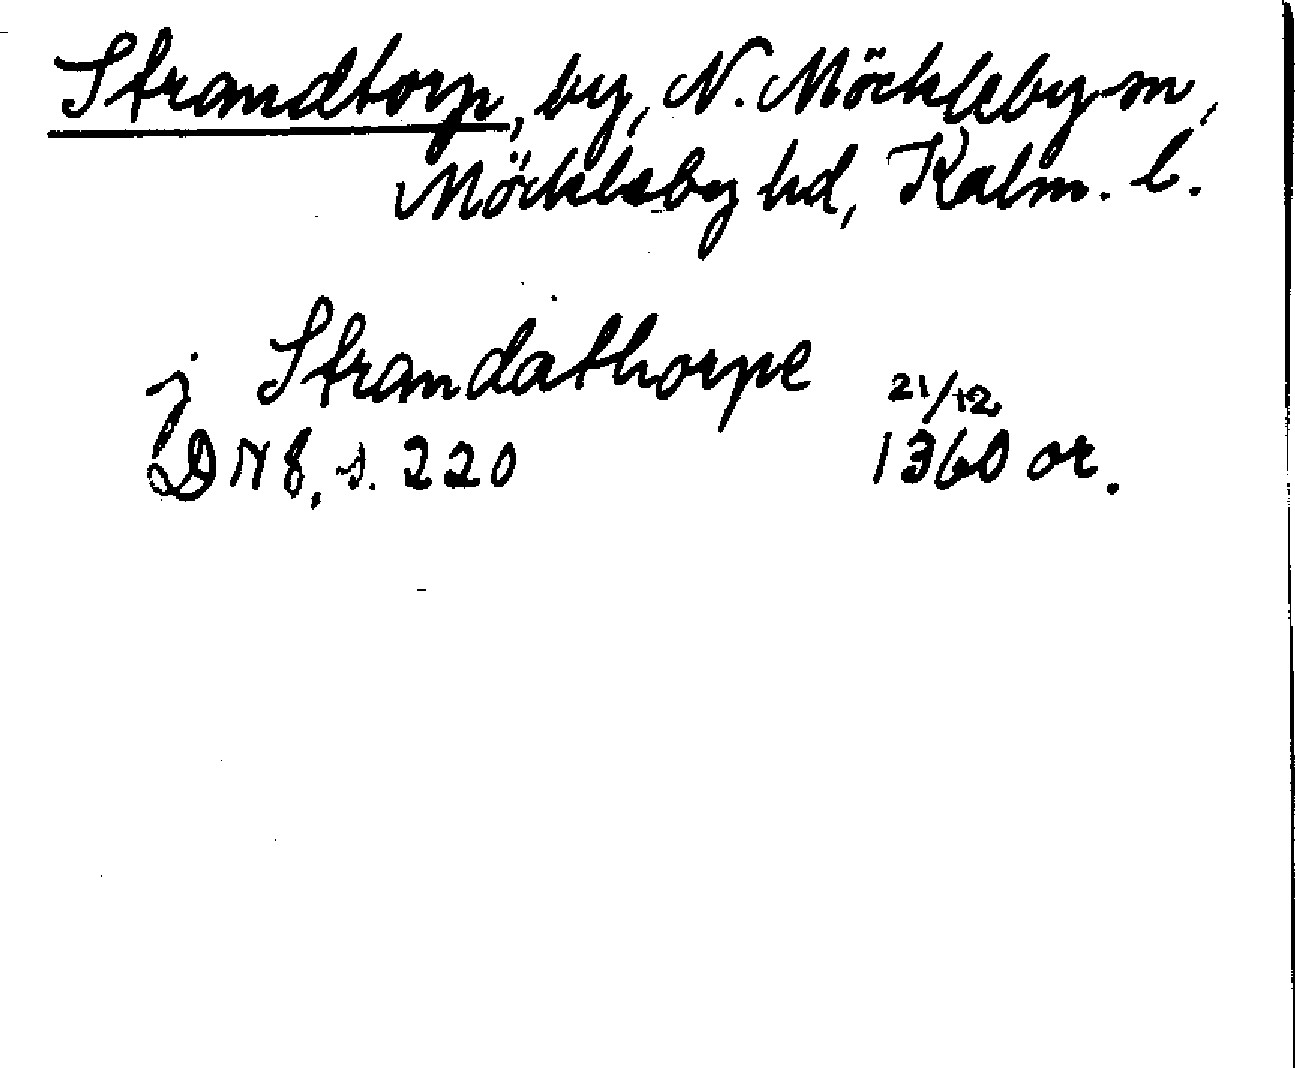 Strandtorp, by, N. Möckleby sn,
Möckleby hd, Kalm. l.
j Strandathorpe 21/12
DN 8, s. 220 1360 or.